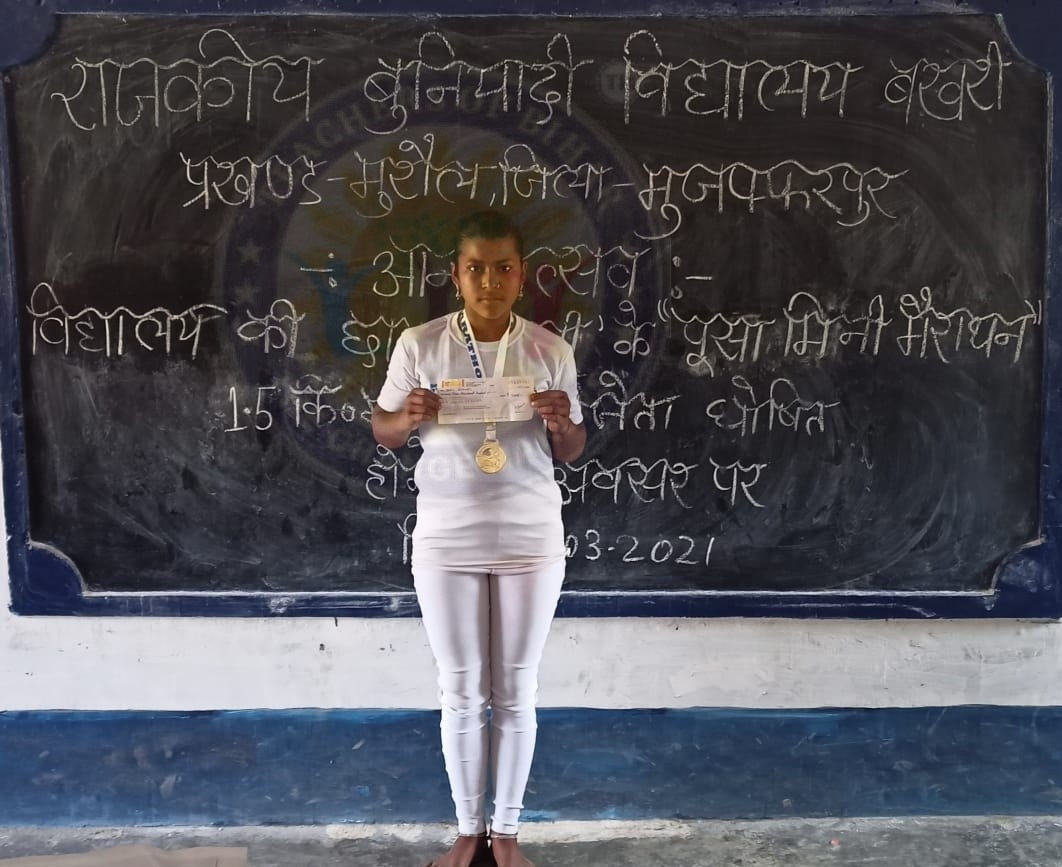 राजकीय बुनियादी विद्यालय बखरी
प्रखण्ड-मुरौल, जिला-मुजफ्फरपुर
-: आन त्सव :-
विद्यालय की छा के "पूसा मिनी मैराथन"
1.5 कि० जेता घोषित
हो अवसर पर
03-2021